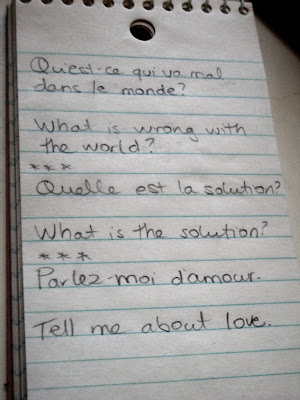 Qu'est-ce qui va mal
dans le monde?
What is wrong with
the world?
***
Quelle est la solution?
What is the solution?
***
Parlez-moi d'amour.
Tell me about love.